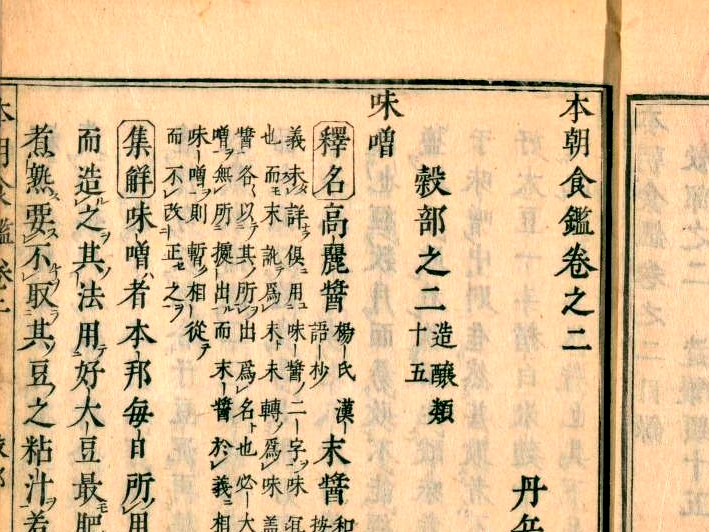 本朝食鑑卷之二
丹
穀部之二 造釀類
十五
味噌
釋名 高麗醬 楊氏漢
語抄 末醬 和
按
義未詳俱用味醬二字味
也而末訛爲未未轉爲味
醬各以其所出爲名也必大
噌無所據出而末醬於義相
味噌則暫相從
而不改正之
集解 味噌者本邦每日所用
而造之其法用好大豆最肥
煮熟要不取其豆之粘汁着
本朝食鑑卷二